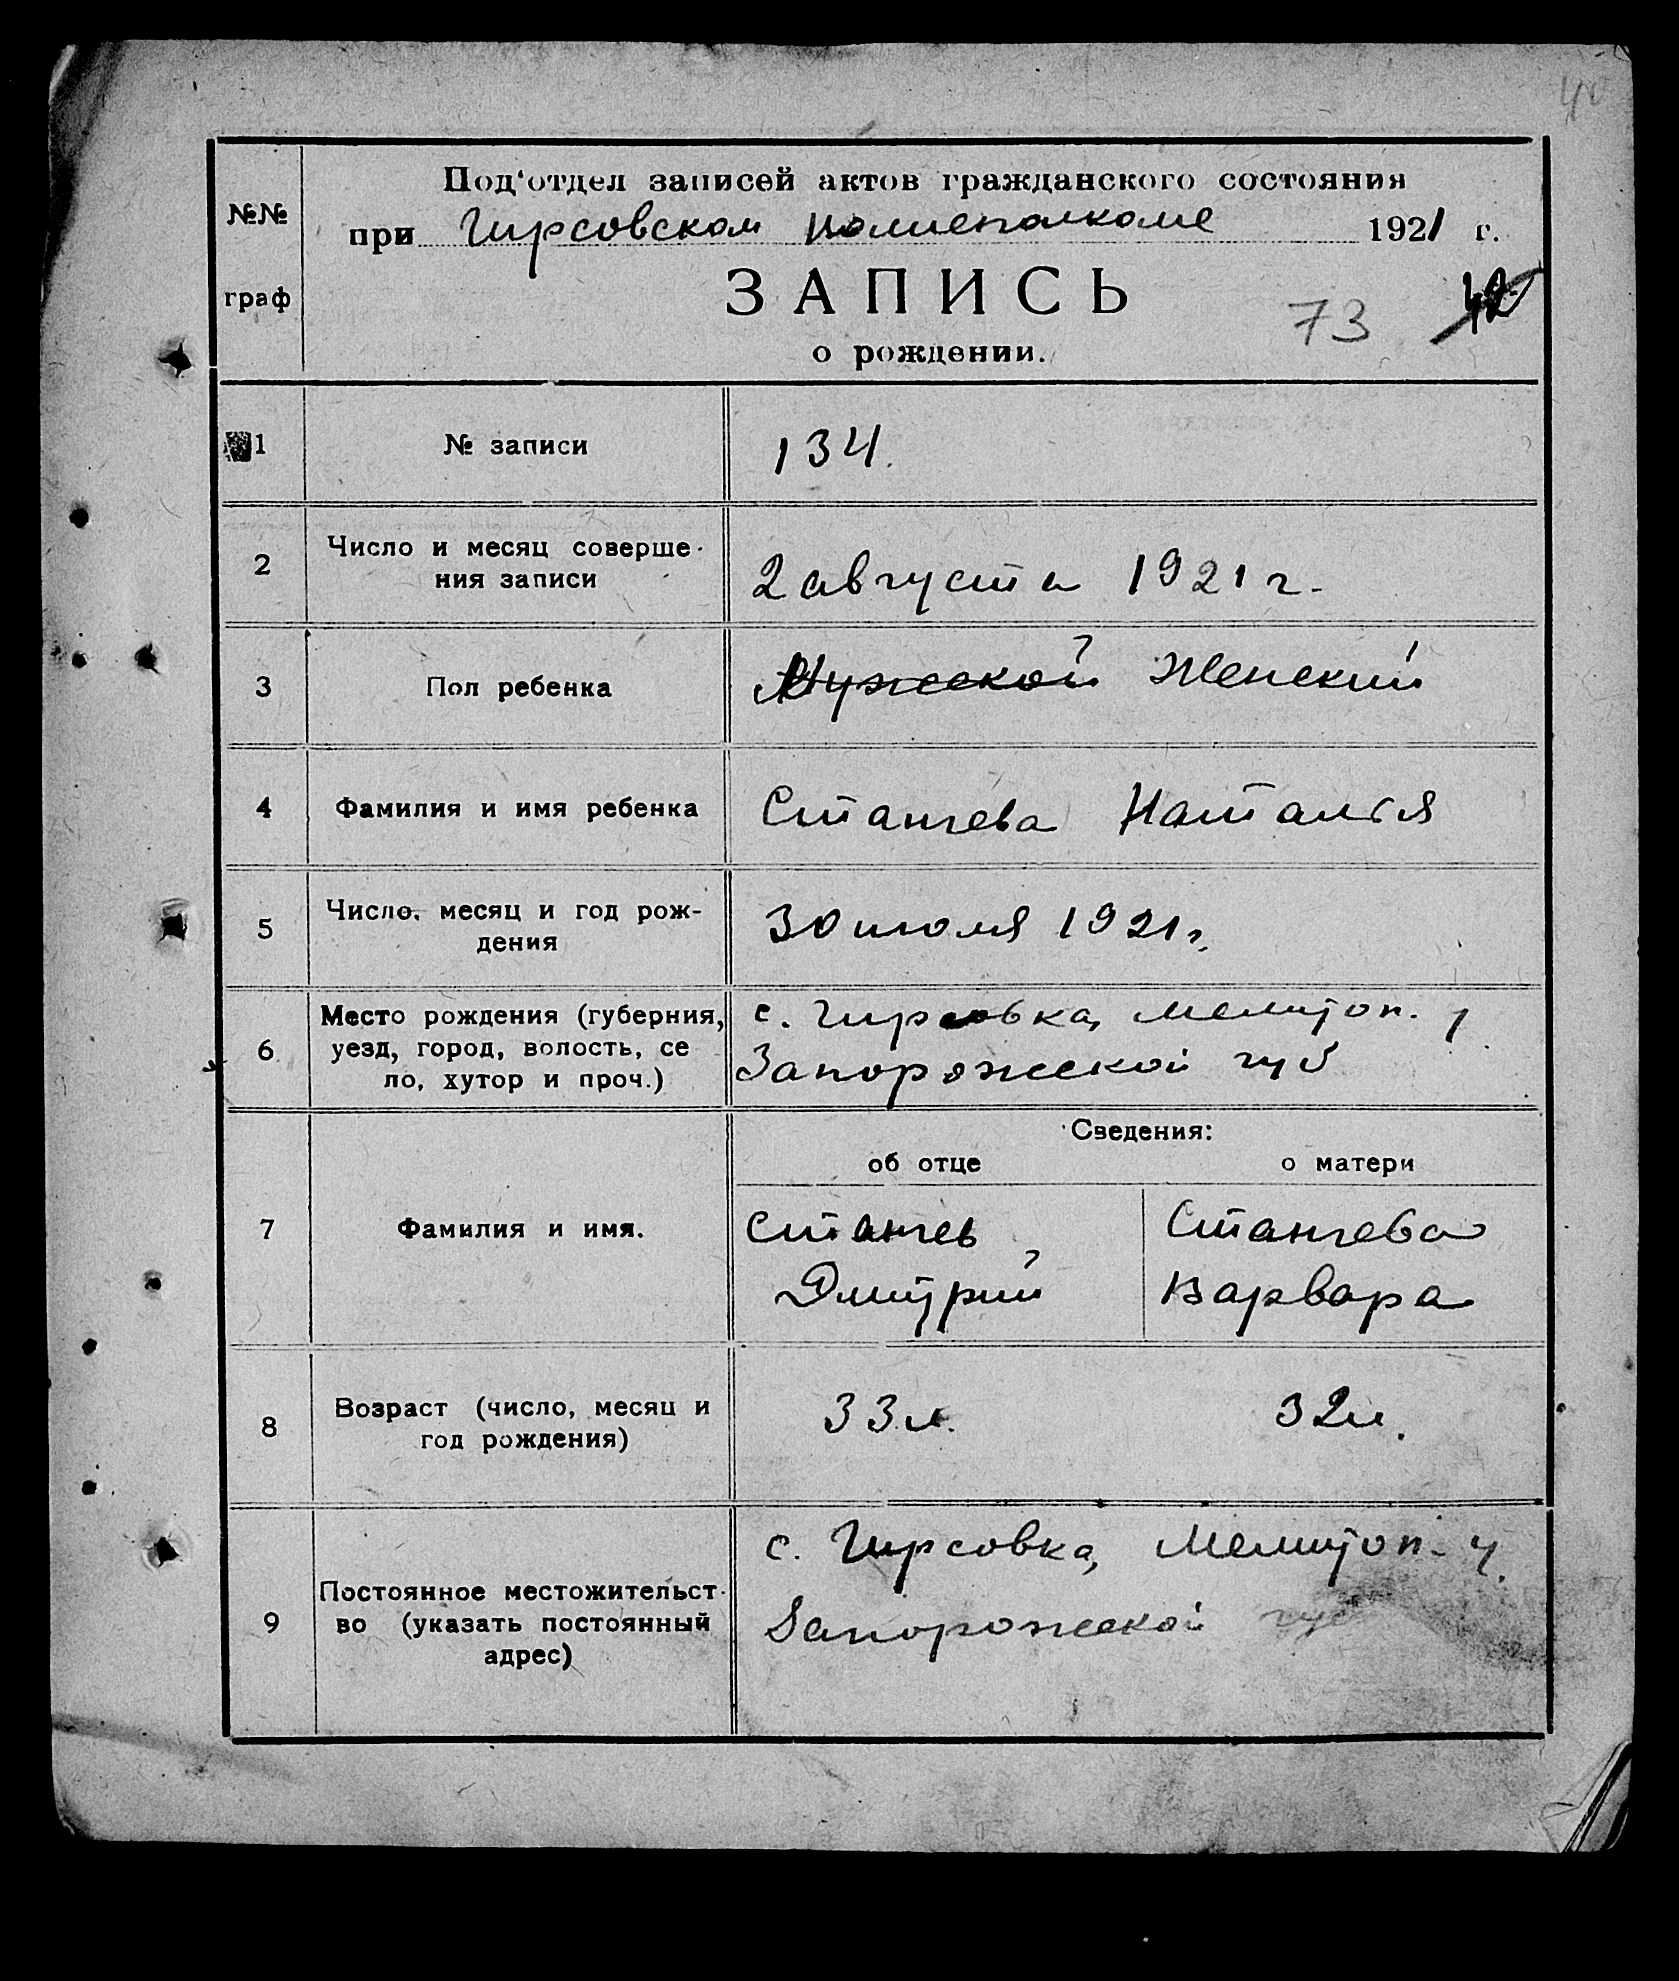 40
Под'отдел записей актов гражданского состояния
№№
при Гирсовском 1921 г.
ЗАПИСЬ
граф
73 42
о рождении.
1 № записи 134.
2 Число и месяц соверше-
ния записи 2 августа 1921 г.
3 Пол ребенка Мужской Женский
4 Фамилия и имя ребенка Станчева Наталья
5 Число, месяц и год рож-
дения 30 июля 1921 г.
6 Место рождения (губерния, с. Гирсовка, Мелитоп. у
уезд, город, волость, се
ло, хутор и проч.) Запорожской губ
Сведения:
об отце о матери
7 Фамилия и имя. Станчев Станчева
Дмитрий Варвара
8 Возраст (число, месяц и
год рождения) 33 л. 32 л.
с. Гирсовка, Мелитоп. у.
9 Постоянное местожительст-
во (указать постоянный Запорожской губ
адрес)